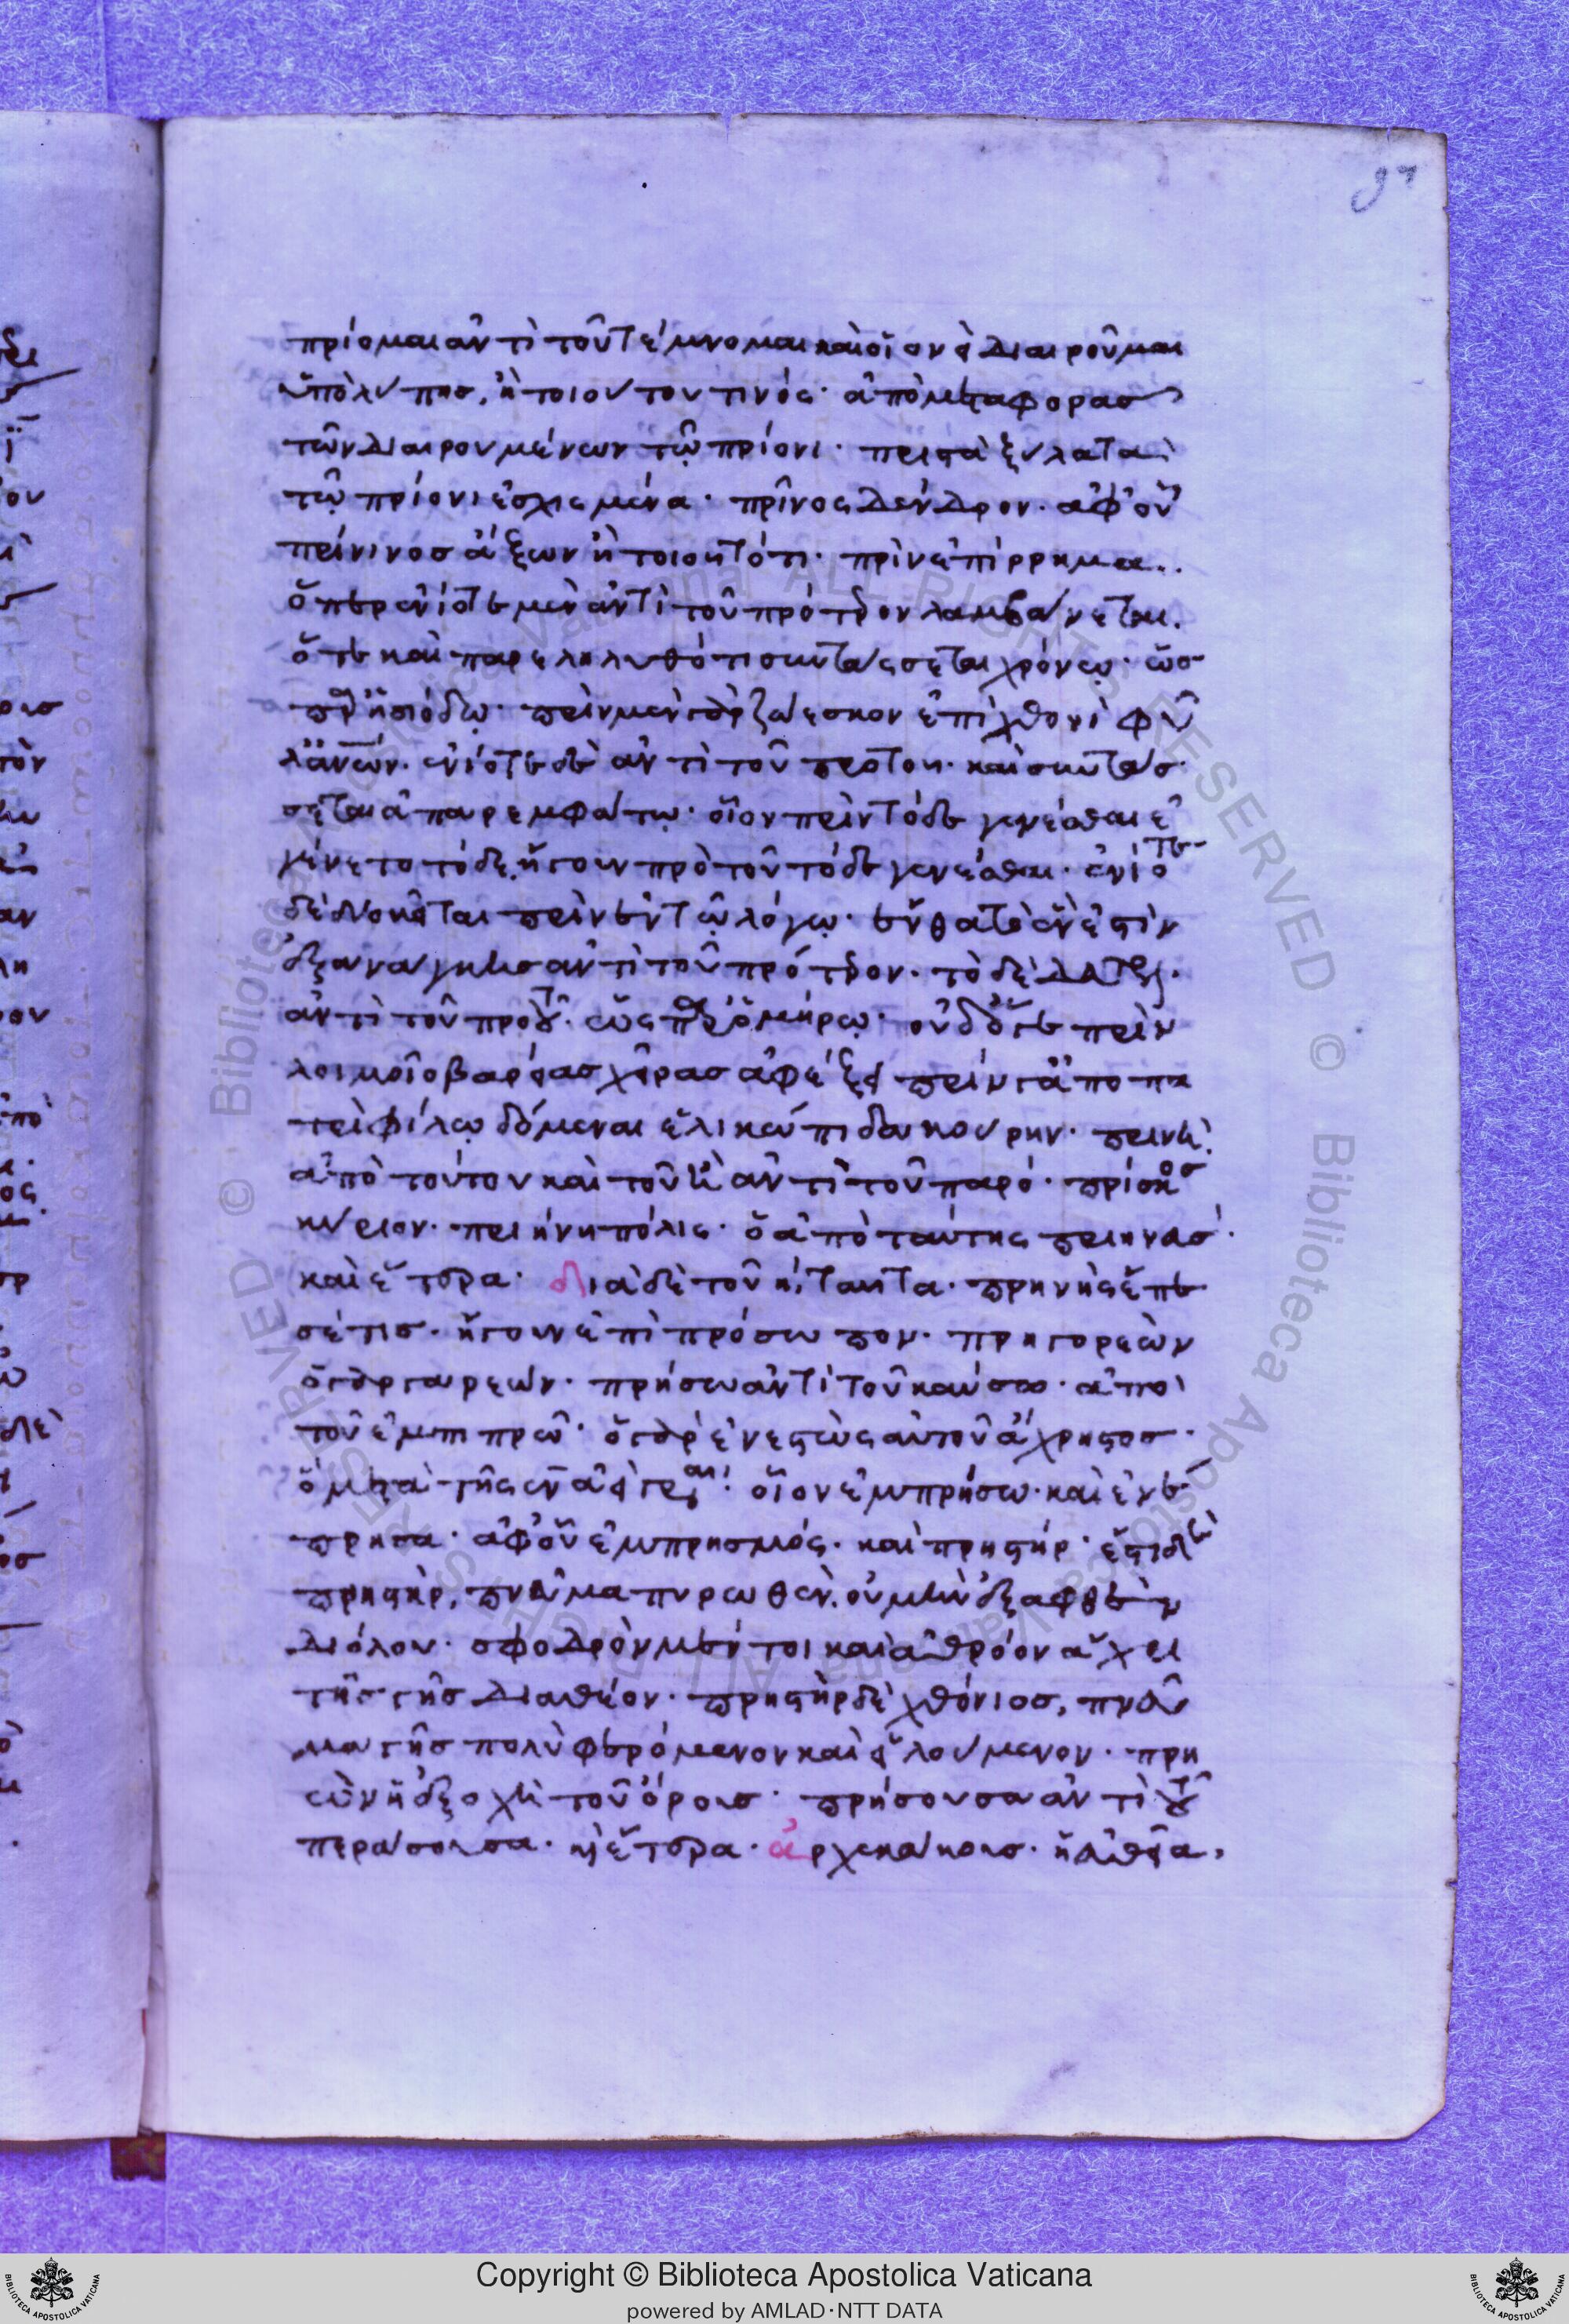 97
πρίομαι ἀντὶ τοῦ τέμνομαι καὶ οἷονεὶ διαιροῦμαι
ὑπὸ λύπης, ἢ τοιούτου τινός· ἀπὸ μεταφορᾶς
τῶν διαιρουμένων τῷ πρίονι· πριστὰ ξύλα τὰ
τῷ πρίονι ἐσχισμένα· πρῖνος δένδρον· ἀφ' οὗ
πρίνινος ἄξων ἢ τοιοῦτό τι· πρὶν ἐπίρρημα..
ὅπερ ἐνίοτε μὲν ἀντὶ τοῦ πρότερον λαμβάνεται.
ὅτε καὶ παρεληλυθότι συντάσσεται χρόνῳ· ὡς
παρ' ἡσιόδῳ· πρὶν μὲν γὰρ ζώεσκον ἐπὶ χθονὶ φῦ
λ' ἀνῶν. ἐνίοτε δὲ ἀντὶ τοῦ πρὸ τοῦ· καὶ συντάσ
σεται ἀπαρεμφάτῳ· οἷον πρὶν τόδε γενέσθαι ἐ
γένετο τόδε, ἤγουν πρὸ τοῦ τόδε γενέσθαι· ἐνίοτε
δὲ διοκεῖται πρὶν ἐν τῷ λόγῳ· ἔνθα τὸ ἓν ἐστὶν
ἐξ ἀνάγκης ἀντὶ τοῦ πρότερον. τὸ δὲ
ἀντὶ τοῦ πρὸ τοῦ· ὡς παρ' ὁμήρῳ· οὐδ' ὅγε πρὶν
λοιμοῖο βαρείας χεῖρας ἀφέξει πρίν γ' ἀπὸ πα
τρὶ φίλῳ δόμεναι ἑλικώπιδα κούρην· πρινὴ
ἀπὸ τούτου καὶ τοῦ ἢ ἀντὶ τοῦ παρό· πρίσκος
κύριον· πριήνη πόλις· ὁ ἀπὸ ταύτης πριηνεύς·
καὶ ἕτερα· διὰ δὲ τοῦ η, ταῦτα· πρηνὴς ἔπε
σέ τις· ἤγουν ἐπὶ πρόσωπον· πρηγορεὼν
ὁ γαργαρεών· πρήσω ἀντὶ τοῦ καύσω· ἀπὸ
τοῦ ἐμπιπρῶ· ὁ γὰρ ἐνεστὼς αὐτοῦ ἄχρηστος·
ὁ μετὰ τῆς ἐν οἷον ἐμπρήσω· καὶ ἐνέ
πρησα· ἀφ' οὗ ἐμπρησμός· καὶ πρηστήρ· ἔστι δὲ
πρηστὴρ, πνεῦμα πυρωθὲν, οὐ μὴν ἐξαφθὲν
διόλου· σφοδρὸν μέντοι καὶ ἀθρόον ἄχρι
τῆς γῆς διαθέον· πρηστὴρ δὲ χθόνιος, πνεῦ
μα γῆς πολὺ φερόμενον καὶ εἰλούμενον· πρη
ὼν ἡ ἐξοχὴ τοῦ ὄρους· πρήσουσα ἀντὶ τοῦ
περάσουσα· καὶ ἕτερα· ἀρχεκάκους· ἠλιθία,
Copyright © Biblioteca Apostolica Vaticana
powered by AMLAD·NTT DATA